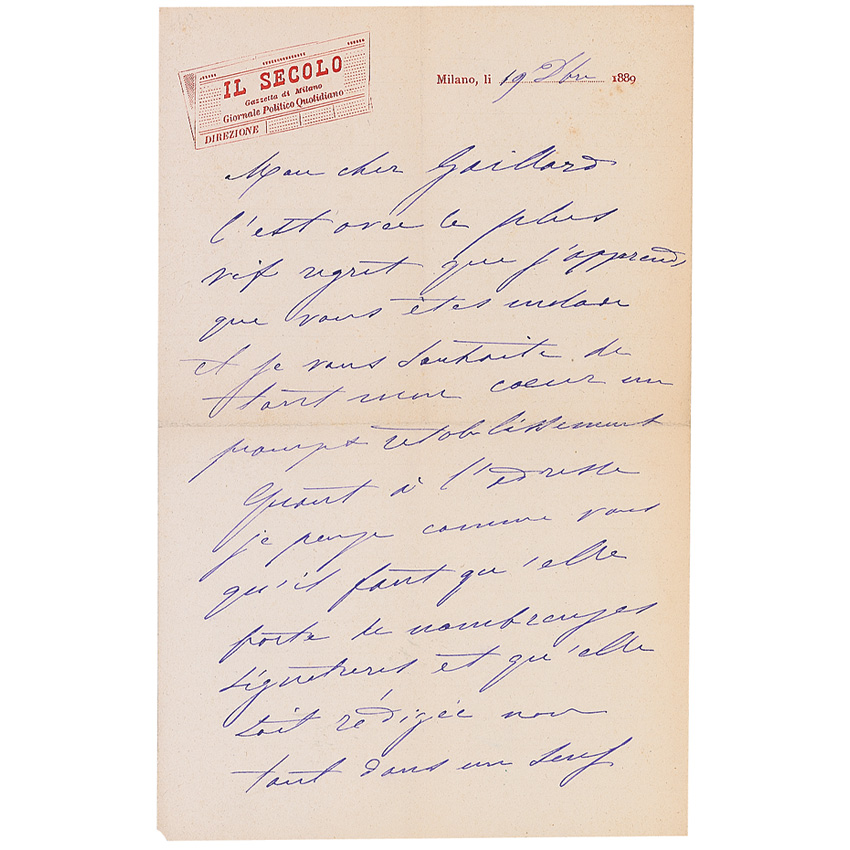 IL SECOLO
Gazzetta di Milano
Giornale Politico Quotidiano
DIREZIONE
Milano, li 19 Xbre 1889
Mon cher Gaillard
C'est avec le plus
vif regret que j'apprends
que vous êtes malade
et je vous souhaite de
tout mon coeur un
prompt retablissement
Quant à l'adresse
je pense comme vous
qu'il faut qu'elle
porte de nombreuses
signatures et qu'elle
soit rédigée non
tant dans un sens